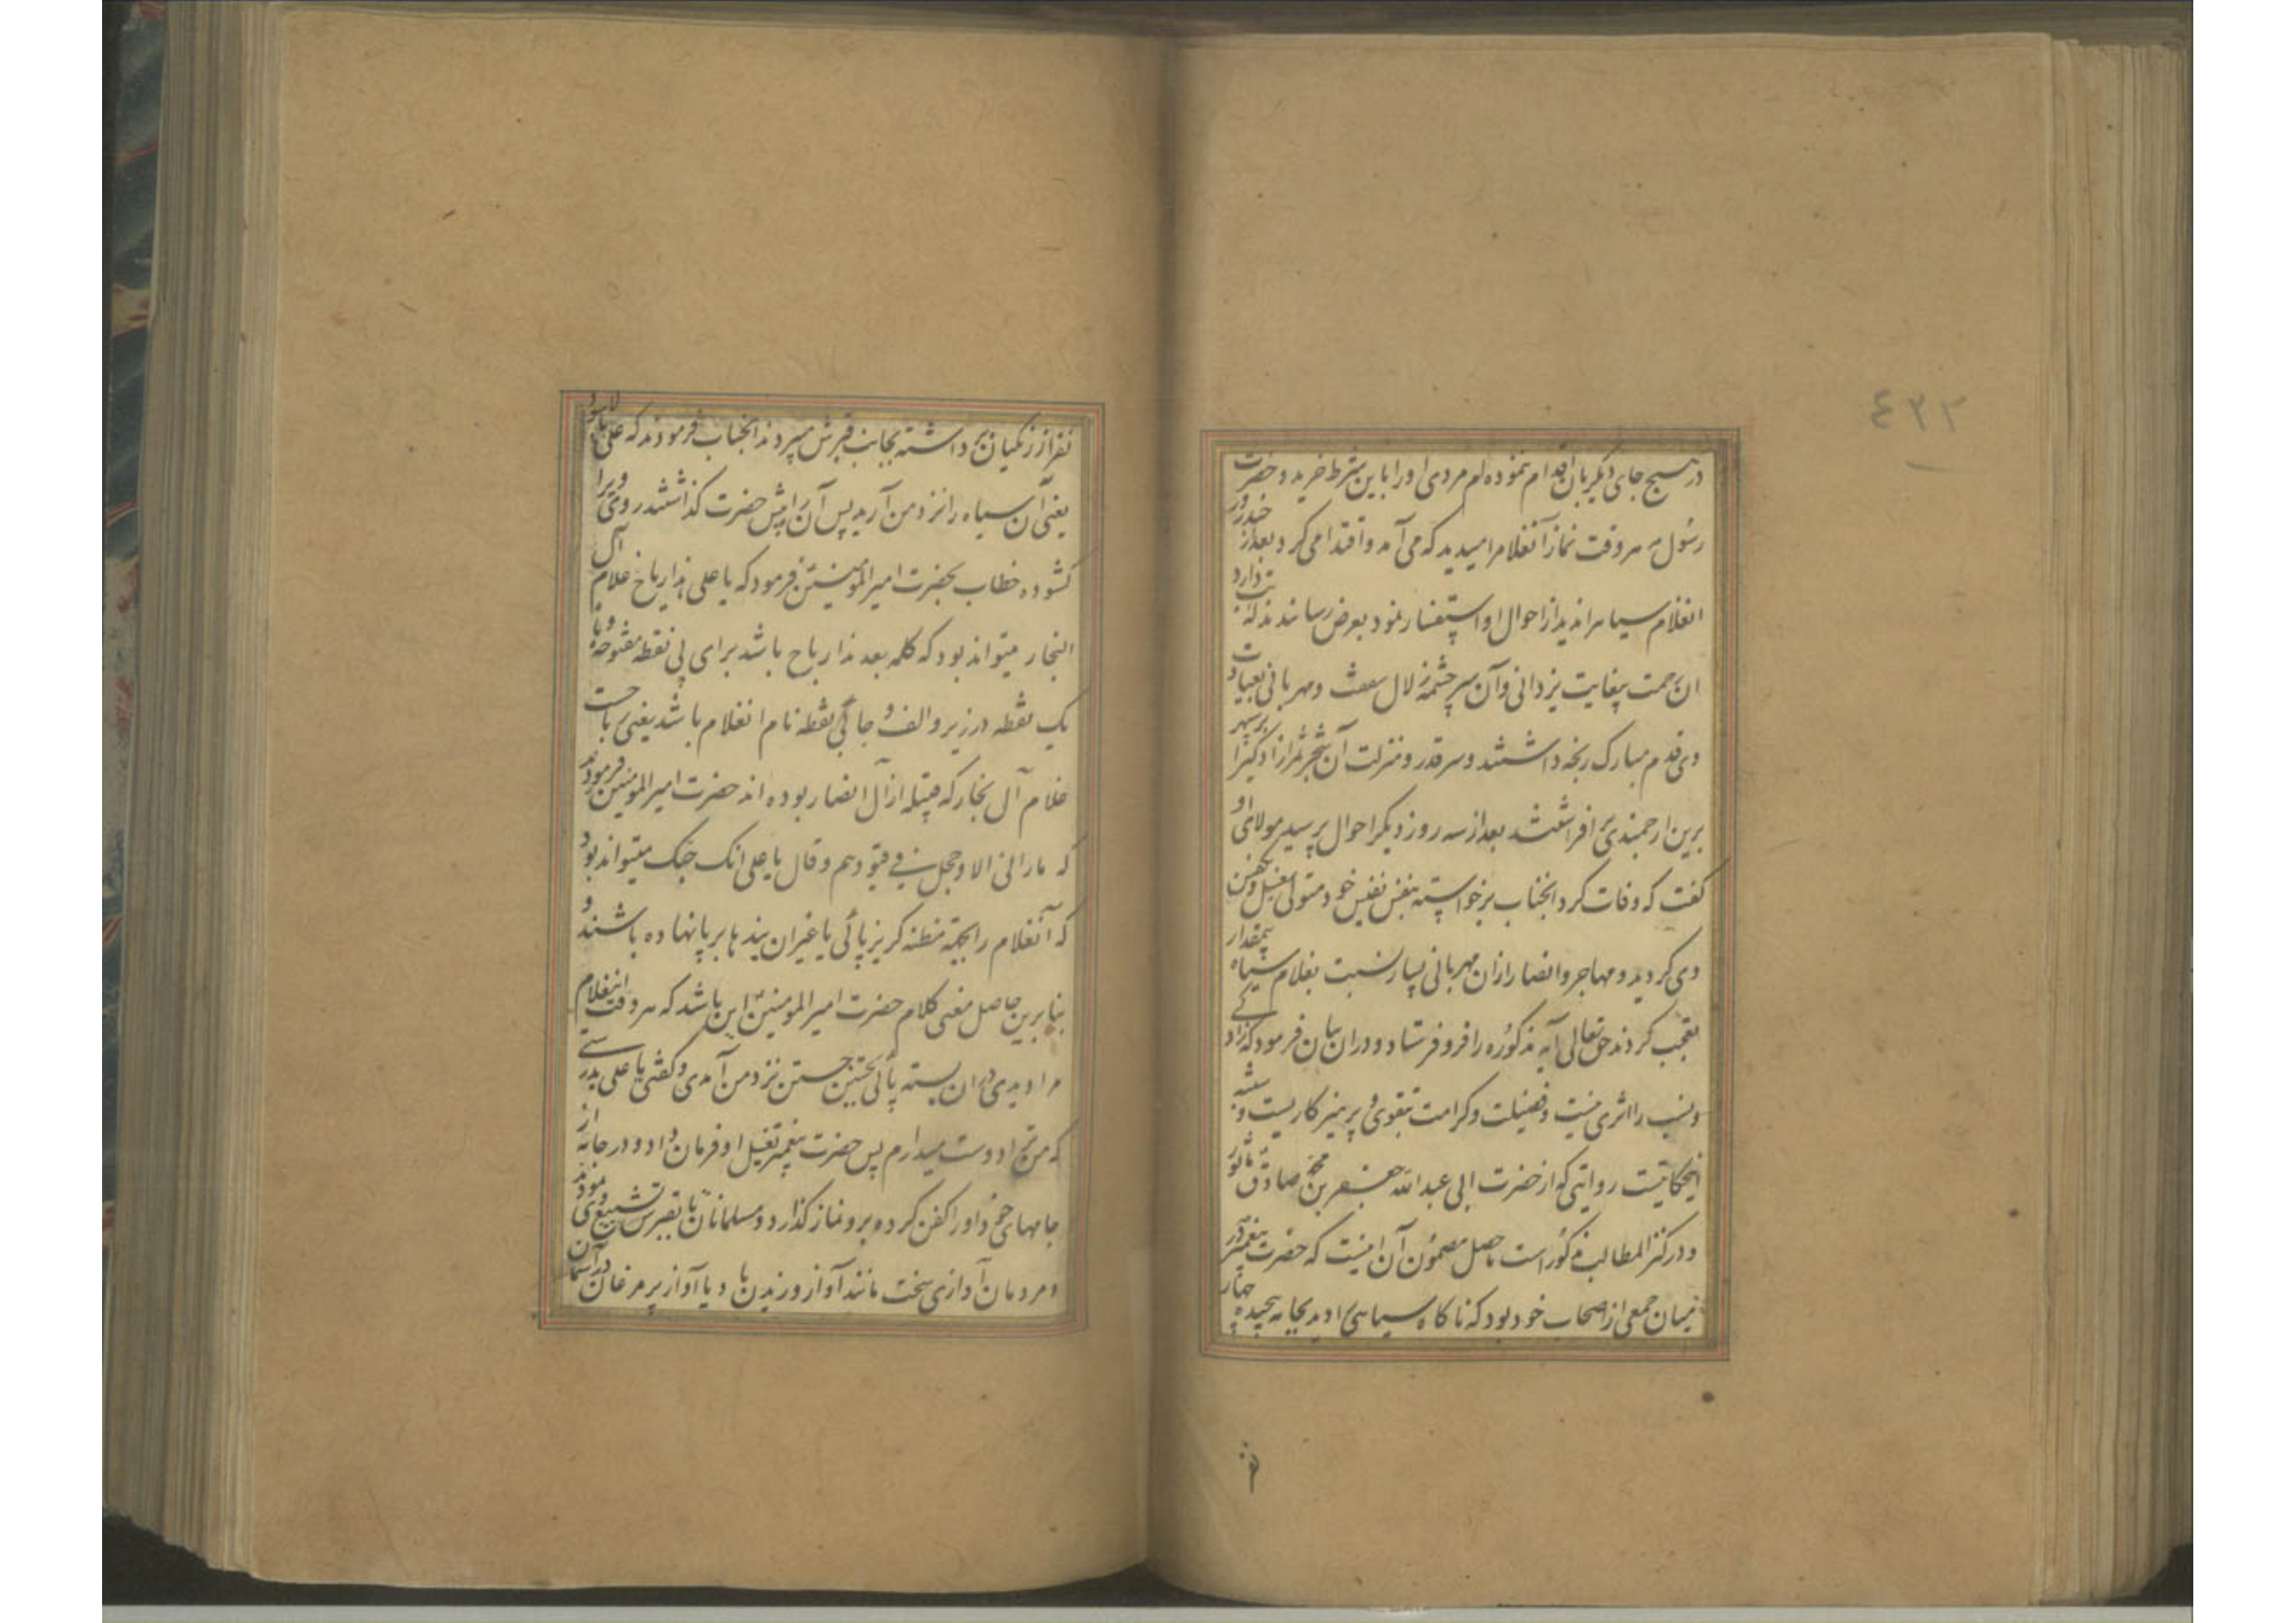 ٤٣٢
در هیچ جای دیگر بان اقدام ننموده‌ام مردی او را باین شرط خرید و حضرت
رسول هر وقت نماز آنغلام را میدید که می‌آمد و اقتدا می‌کرد بعد از چند روز
انغلام سیاه را ندید از احوال او استفسار نمود بعرض رسانیدند که تب دارد
ان رحمت بیغایت یزدانی و آن سرچشمه زلال و مهربانی بعیادت
وی قدم مبارک رنجه داشتند و سر قدر و منزلت آن را از بر سپهر
برین ارجمندی بر افراشتند بعد از سه روز دیگر احوال پرسید مولای او
گفت که وفات کرد انجناب برخواسته بنفس نفیس خود متولی غسل و تکفین
وی گردید و مهاجر و انصار ازان مهربانی بسیار نسبت بغلام سیاه بیمقدار
تعجب کردند حق تعالی آیه مذکوره را فرو فرستاد و دران بیان فرمود که نژاد
و نسب را اثری نیست و فضیلت و کرامت بتقوی و پرهیزکاریست و
اینحکایتست روایتی که از حضرت ابی عبد الله جعفر بن محمد صادق ماثور
و در کنز المطالب مذکور است حاصل مضمون آن اینست که حضرت پیغمبر در
میان جمعی از اصحاب خود بود که ناگاه سیاهی دید بجامه پیچیده چهار
نفر از زنگیان برداشته بجانب قبرش میبردند انجناب فرمودند که علی بالاسود
یعنی آن سیاه را نزد من آرید پس آن را پیش حضرت گذاشتند روی ویرا
گشوده خطاب بحضرت امیر المومنین فرمود که یا علی هذا رباح غلام آل
النجار میتواند بود که کلمه بعد هذا رباح باشد برای بی نقطه مفتوحه و با
یک نقطه در زیر و الف و حا بی نقطه نام انغلام باشد یعنی رباحست
غلام آل نجار که قبیله از آل انصار بوده‌اند حضرت امیر المومنین فرمودند
که ما رانی الا وحجل فی قیوده و قال یا علی انک میتواند بود
که آنغلام را بجهته مظنه گریزپائی یا غیر ان بندها بر پا نهاده باشند و
بنابرین حاصل معنی کلام حضرت امیر المومنین این باشد که هر وقت اینغلام
مرا دیدی دران بسته پائی جستن نزد من آمدی و گفتی یا علی بدرستی
که من ترا دوست میدارم پس حضرت پیغمبر بغسل او فرمان داد و در جامه از
جامهای خود او را کفن کرده برو نماز گذارد و مسلمانان تا بقبرش تشییع وی نمودند
و مردمان آوازی سخت مانند آواز وزیدن باد یا آواز پر مرغان در آسمان